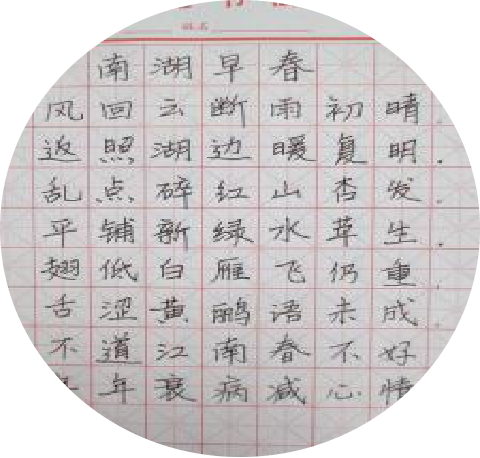 姓名
南湖早春
风回云断雨初晴.
返照湖边暖复明.
乱点碎红山杏发.
平铺新绿水草生.
翅低白雁飞仍重.
舌涩黄鹂语未成.
不道江南春不好
年衰病减心情